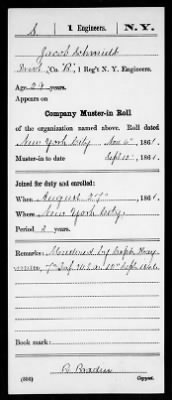 S | 1 Engineers. | N.Y.
Jacob Schmidt
Co. B, 1 Reg't N. Y. Engineers.
Age 29 years.
Appears on
Company Muster-in Roll
of the organization named above. Roll dated
New York City Nov 6, 1861.
Muster-in to date Sept 12, 1861.
Joined for duty and enrolled:
When August 27, 1861.
Where New York City.
Period 3 years.
Remarks: Mustered by Capt
7th Inf. U.S.A. 12th Sept. 1861
Book mark:
(356)
Copyist.